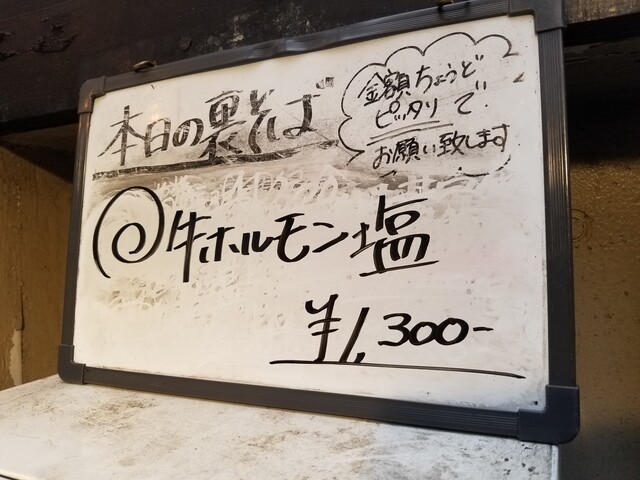 本日の裏そば
金額ちょうど
ピッタリで
お願い致します
牛ホルモン塩
¥1,300-